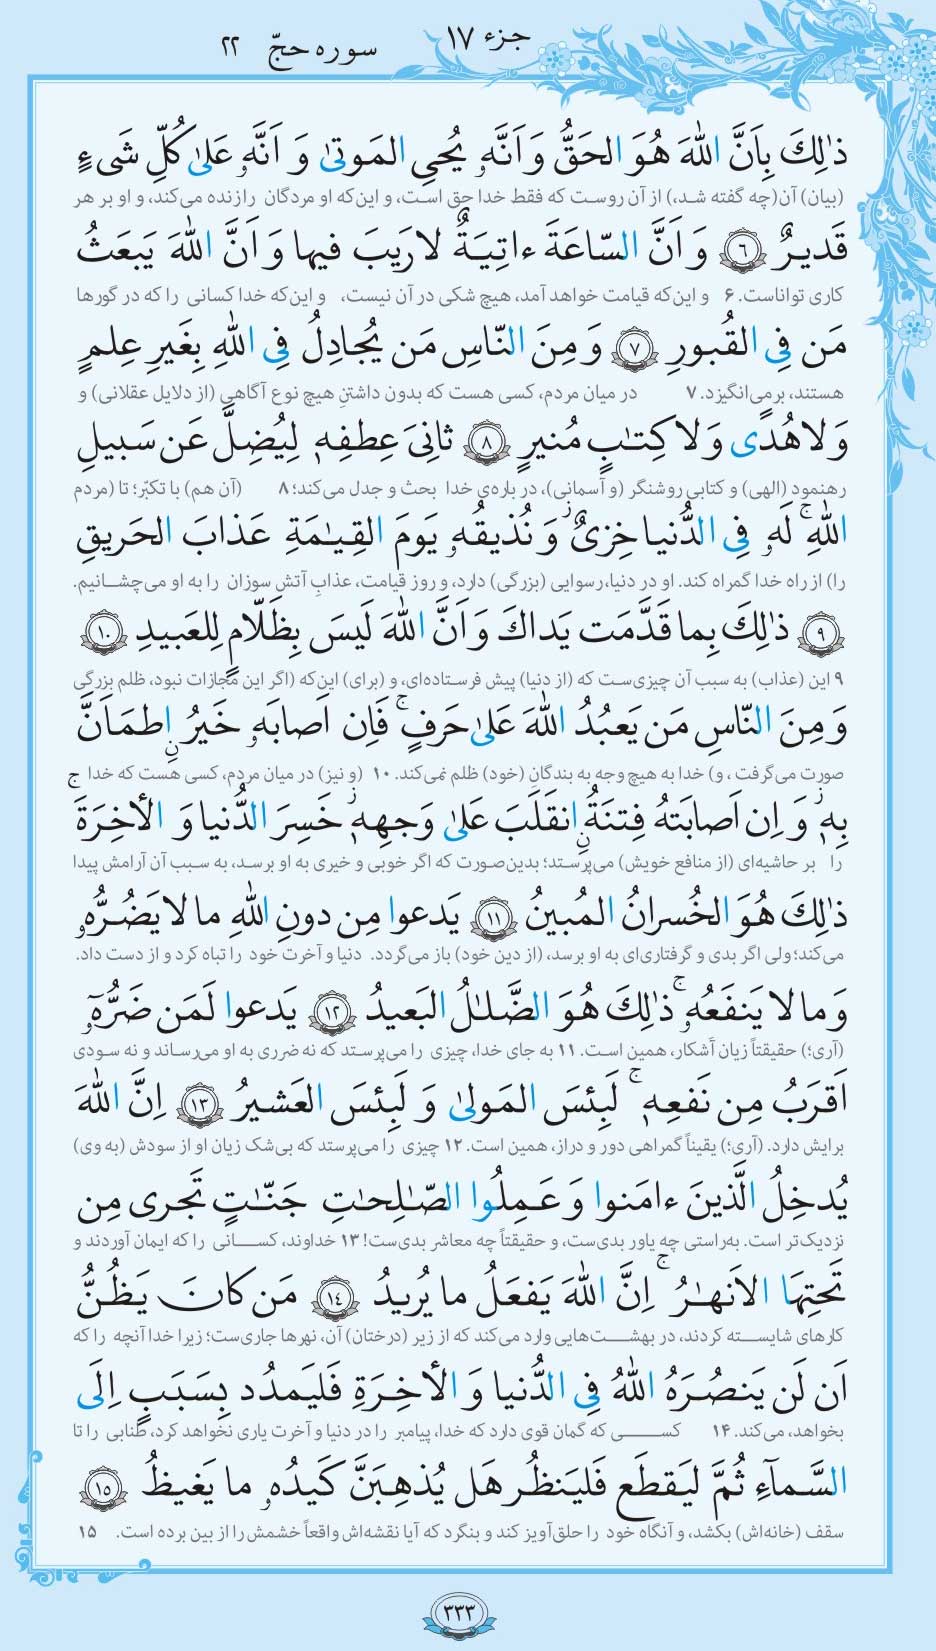 جزء ۱۷
سوره حجّ ۲۲
ذٰلِكَ بِاَنَّ اللّٰهَ هُوَ الحَقُّ وَ اَنَّهٗ يُحيِي المَوتىٰ وَ اَنَّهٗ عَلىٰ كُلِّ شَىءٍ
(بیان) آن(چه گفته شد،) از آن روست که فقط خدا حق است، و این‌که او مردگان را زنده می‌کند، و او بر هر
قَديرٌ ﴿٦﴾ وَ اَنَّ السّاعَةَ ءاتِيَةٌ لا رَيبَ فيها وَ اَنَّ اللّٰهَ يَبعَثُ
کاری تواناست. ۶ و این‌که قیامت خواهد آمد، هیچ شکی در آن نیست، و این‌که خدا کسانی را که در گورها
مَن فِى القُبورِ ﴿٧﴾ وَ مِنَ النّاسِ مَن يُجادِلُ فِى اللّٰهِ بِغَيرِ عِلمٍ
هستند، برمی‌انگیزد. ۷ در میان مردم، کسی هست که بدون داشتنِ هیچ نوع آگاهی (از دلایل عقلانی) و
وَ لا هُدًى وَ لا كِتـٰبٍ مُنيرٍ ﴿٨﴾ ثانِىَ عِطفِهٖ لِيُضِلَّ عَن سَبيلِ
رهنمود (الهی) و کتابی روشنگر (و آسمانی)، در باره‌ی خدا بحث و جدل می‌کند؛ ۸ (آن هم) با تکبّر؛ تا (مردم
اللّٰهِ ۚ لَهٗ فِى الدُّنيا خِزىٌ ۖ وَ نُذيقُهٗ يَومَ القِيـٰمَةِ عَذابَ الحَريقِ
را) از راه خدا گمراه کند. او در دنیا، رسوایی (بزرگی) دارد، و روز قیامت، عذابِ آتش سوزان را به او می‌چشـانیم.
﴿٩﴾ ذٰلِكَ بِما قَدَّمَت يَداكَ وَ اَنَّ اللّٰهَ لَيسَ بِظَلّامٍ لِلعَبيدِ ﴿١٠﴾
۹ این (عذاب) به سبب آن چیزی‌ست که (از دنیا) پیش فرستاده‌ای، و (برای) این‌که (اگر این مجازات نبود، ظلم بزرگی
وَ مِنَ النّاسِ مَن يَعبُدُ اللّٰهَ عَلىٰ حَرفٍ ۚ فَاِن اَصابَهٗ خَيرٌ اِطمَاَنَّ
صورت می‌گرفت ، و) خدا به هیچ وجه به بندگانِ (خود) ظلم نمی‌کند. ۱۰ (و نیز) در میان مردم، کسی هست که خدا
بِهٖ وَ اِن اَصابَتهُ فِتنَةٌ اِنقَلَبَ عَلىٰ وَجهِهٖ خَسِرَ الدُّنيا وَ الأخِرَةَ ۚ
را بر حاشیه‌ای (از منافع خویش) می‌پرستد؛ بدین‌صورت که اگر خوبی و خیری به او برسد، به سبب آن آرامش پیدا
ذٰلِكَ هُوَ الخُسرانُ المُبينُ ﴿١١﴾ يَدعوا مِن دونِ اللّٰهِ ما لا يَضُرُّهٗ
می‌کند؛ ولی اگر بدی و گرفتاری‌ای به او برسد، (از دین خود) باز می‌گردد. دنیا و آخرت خود را تباه کرد و از دست داد.
وَ ما لا يَنفَعُهٗ ۚ ذٰلِكَ هُوَ الضَّلـٰلُ البَعيدُ ﴿١٢﴾ يَدعوا لَمَن ضَرُّهٗٓ
(آری؛) حقیقتاً زیان آشکار، همین است. ۱۱ به جای خدا، چیزی را می‌پرستد که نه ضرری به او می‌رساند و نه سودی
اَقرَبُ مِن نَفعِهٖ ۚ لَبِئسَ المَولىٰ وَ لَبِئسَ العَشيرُ ﴿١٣﴾ اِنَّ اللّٰهَ
برایش دارد. (آری؛) یقیناً گمراهی دور و دراز، همین است. ۱۲ چیزی را می‌پرستد که بی‌شک زیان او از سودش (به وی)
يُدخِلُ الَّذينَ ءامَنوا وَ عَمِلُوا الصّـٰلِحـٰتِ جَنّـٰتٍ تَجرى مِن
نزدیک‌تر است. به‌راستی چه یاور بدی‌ست، و حقیقتاً چه معاشر بدی‌ست! ۱۳ خداوند، کسـانی را که ایمان آوردند و
تَحتِهَا الاَنهـٰرُ ۚ اِنَّ اللّٰهَ يَفعَلُ ما يُريدُ ﴿١٤﴾ مَن كانَ يَظُنُّ
کارهای شایسـته کردند، در بهشـت‌هایی وارد می‌کند که از زیر (درختان) آن، نهرها جاری‌ست؛ زیرا خدا آنچه را که
اَن لَن يَنصُرَهُ اللّٰهُ فِى الدُّنيا وَ الأخِرَةِ فَليَمدُد بِسَبَبٍ اِلَى
بخواهد، می‌کند. ۱۴ کسـی که گمان قوی دارد که خدا، پیامبر را در دنیا و آخرت یاری نخواهد کرد، طنابی را تا
السَّمآءِ ثُمَّ ليَقطَع فَليَنظُر هَل يُذهِبَنَّ كَيدُهٗ ما يَغيظُ ﴿١٥﴾
سقف (خانه‌اش) بکشد، و آنگاه خود را حلق‌آویز کند و بنگرد که آیا نقشه‌اش واقعاً خشمش را از بین برده است. ۱۵
۳۳۳